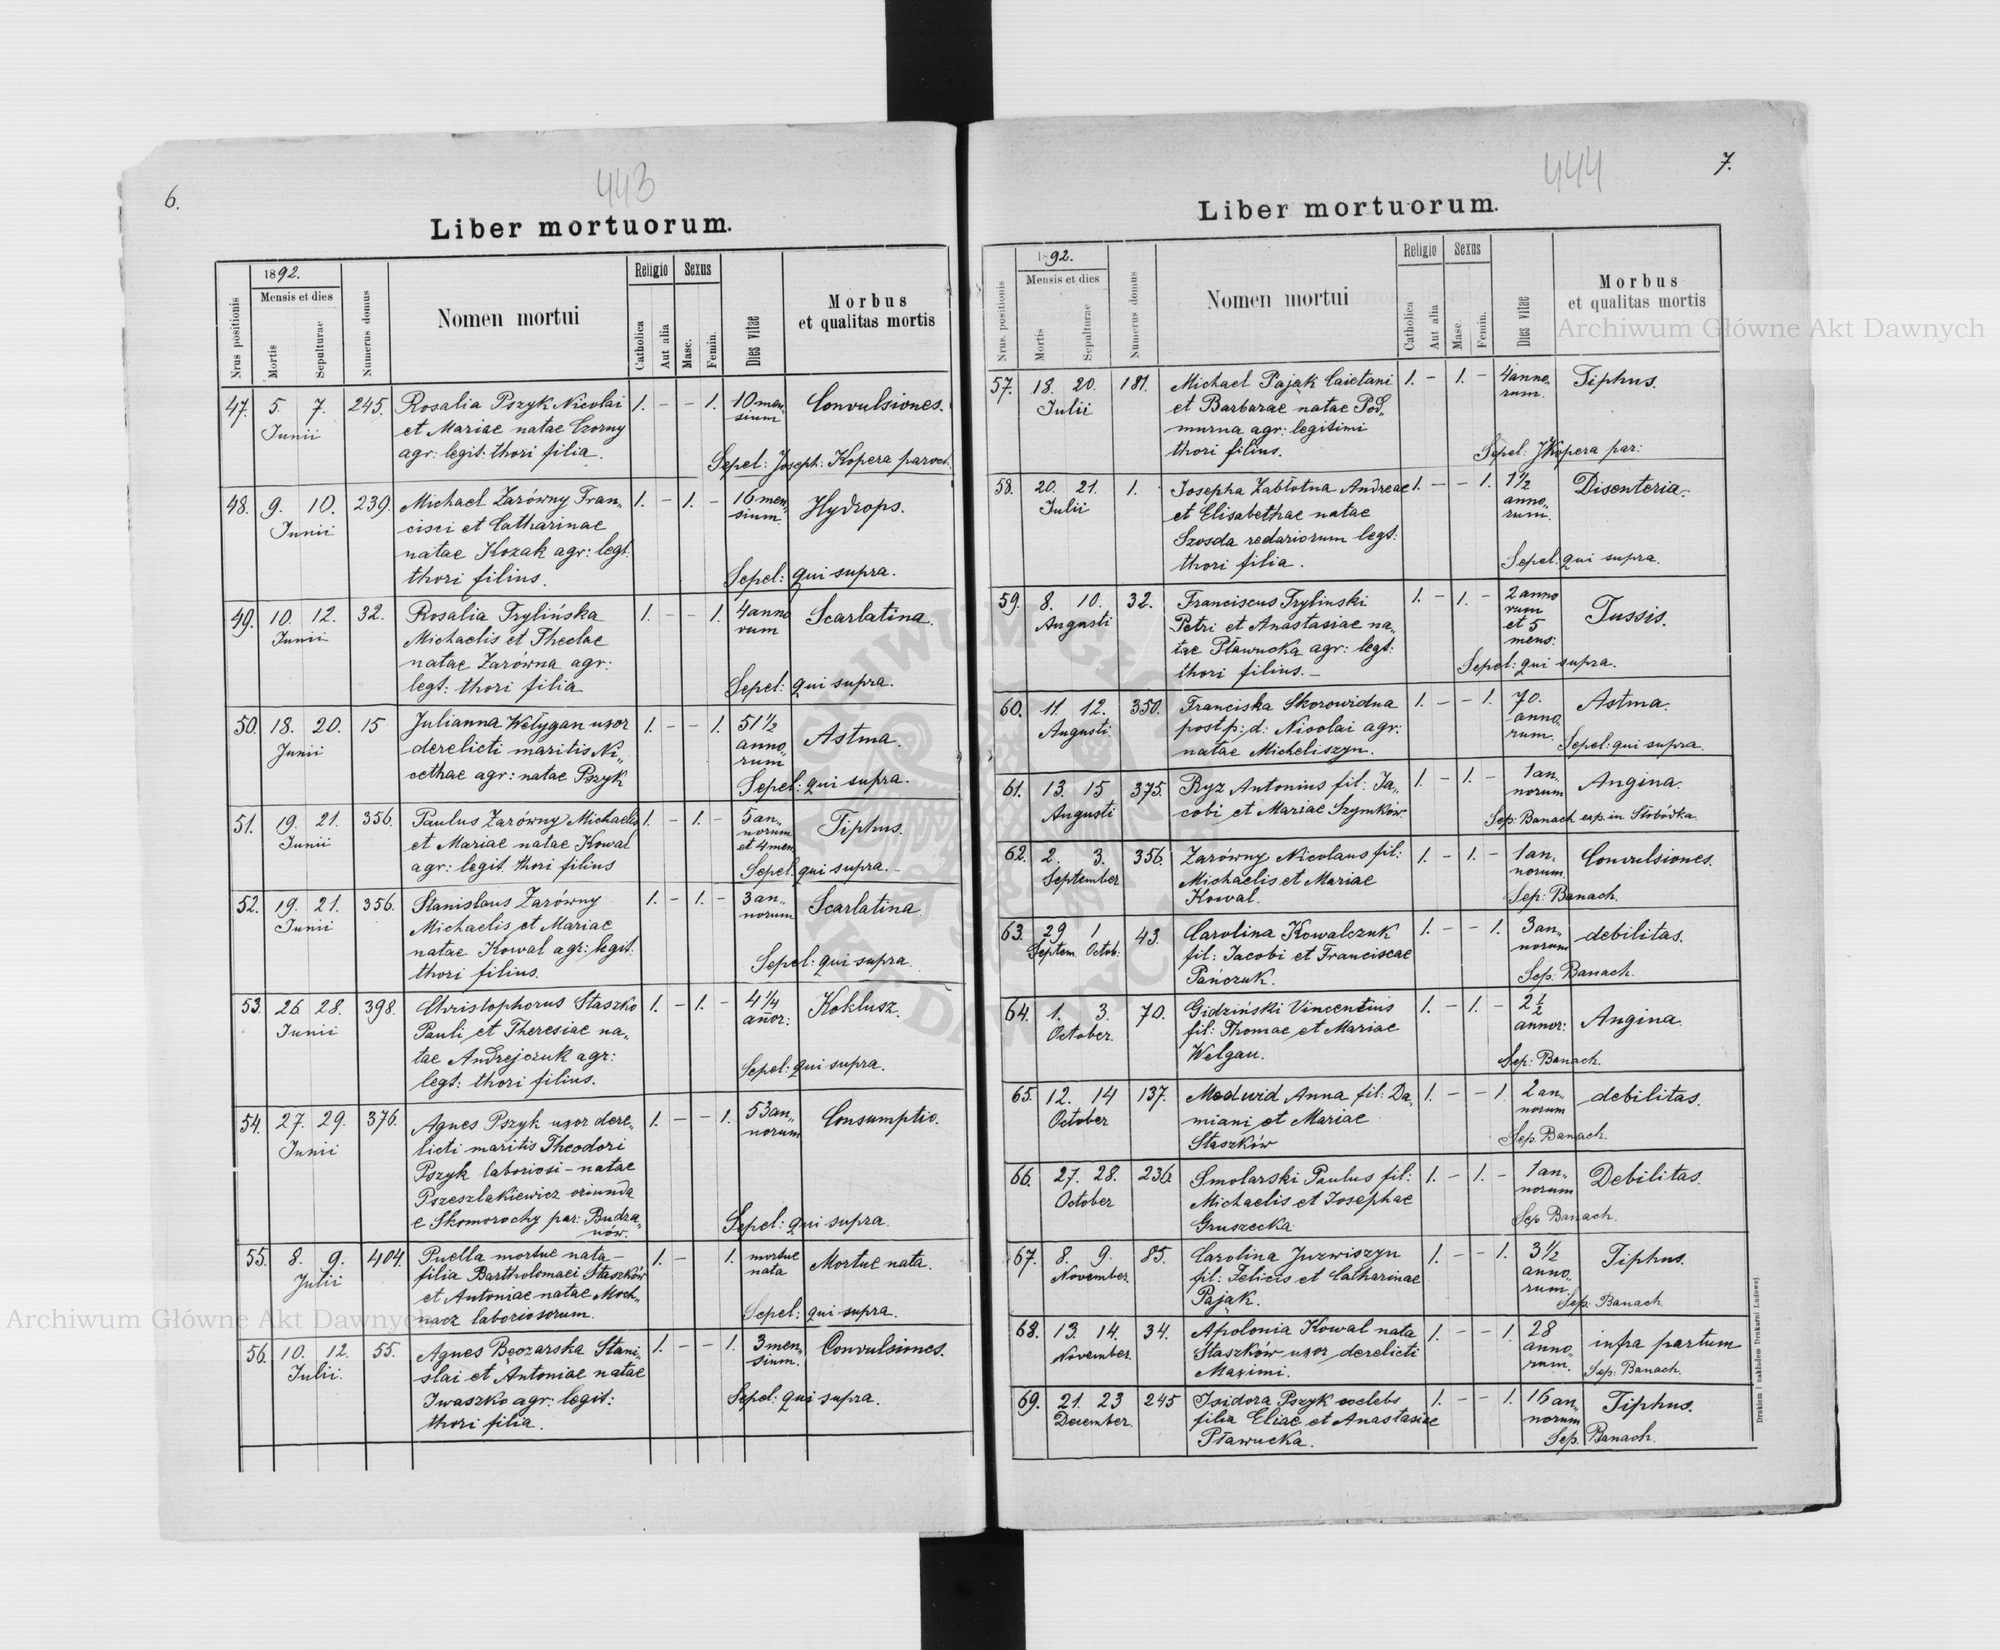 6.
443
Liber mortuorum.
Nrus positionis
1892.
Mensis et dies
Mortis
Sepulturae
Numerus domus
Nomen mortui
Religio
Catholica
Aut alia
Sexus
Masc.
Femin.
Dies vitae
Morbus
et qualitas mortis
47. 5. 7. 245. Rosalia Pszyk Nicolai 1. - - 1. 10 men„ Convulsiones.
Junii et Mariae natae Czorny sium
agr: legit: thori filia. Sepel: Joseph: Kopera paroch.
48. 9. 10. 239. Michael Zarówny Fran„ 1. - 1. - 16 men„ Hydrops.
Junii cisci et Catharinae sium.
natae Kozak agr: legt:
thori filius. Sepel: qui supra.
49. 10. 12. 32. Rosalia Trylińska 1. - - 1. 4 anno Scarlatina.
Junii Michaelis et Theclae rum
natae Zarówna agr:
legt: thori filia Sepel: qui supra.
50. 18. 20. 15 Julianna Wełygan uxor 1. - - 1. 51 1/2 Astma.
Junii derelicti maritis Ni„ anno„
cethae agr: natae Pszyk rum
Sepel: qui supra.
51. 19. 21. 356. Paulus Zarówny Michaelis 1. - 1. - 5 an„ Tiphus.
Junii et Mariae natae Kowal norum
agr: legit. thori filius et 4 men.
Sepel. qui supra.-
52. 19. 21. 356. Stanislaus Zarówny 1. - 1. - 3 an„ Scarlatina.
Junii Michaelis et Mariae norum
natae Kowal agr: legit:
thori filius. Sepel: qui supra.
53. 26 28. 398. Christophorus Staszko 1. - 1. - 4 1/4 Koklusz.
Junii Pauli et Theresiae na„ annor:
tae Andrejczuk agr:
legt: thori filius. Sepel: qui supra.
54. 27. 29. 376. Agnes Pszyk uxor dere„ 1. - - 1. 53 an„ Consumptio.
Junii licti maritis Theodori norum
Pszyk laboriosi - natae
Pszeszlakiewicz oriunda
e Skomorochy par: Budza„ Sepel: qui supra.
nów.
55. 8. 9. 404. Puella mortue nata - 1. - 1. mortue Mortue nata.
Julii filia Bartholomaei Staszków nata
et Antoniae natae Moch„
nacz laboriosorum. Sepel: qui supra.
56. 10. 12. 55. Agnes Beozarska Stani„ 1. - - 1. 3 men„ Convulsiones.
Julii. slai et Antoniae natae sium.
Iwaszko agr: legit: Sepel: qui supra.
thori filia.
7.
444
Liber mortuorum.
Nrus. positionis
1892.
Mensis et dies
Mortis
Sepulturae
Numerus domus
Nomen mortui
Religio
Catholica
Aut alia
Sexus
Masc.
Femin.
Dies vitae
Morbus
et qualitas mortis
57. 18. 20. 181. Michael Pająk Caietani 1. - 1. - 4 anno„ Tiphus.
Julii et Barbarae natae Pod„ rum.
murna agr: legitimi
thori filius. Sepel: JKopera par:
58. 20. 21. 1. Josepha Zabłotna Andreae 1. - - 1. 1 1/2 Disenteria.
Julii et Elisabethae natae anno„
Szosda redariorum legt: rum.
thori filia. Sepel: qui supra.
59. 8. 10. 32. Franciscus Trylinski 1. - 1. - 2 anno Tussis.
Augusti Petri et Anastasiae na„ rum
tae Pławucka agr: legt: et 5
thori filius. - mens:
Sepel: qui supra.
60. 11. 12. 350. Franciska Skorowidna 1. - - 1. 70. Astma.
Augusti post p: d: Nicolai agr: anno„
natae Micheliszyn. rum. Sepel: qui supra.
61. 13. 15 375. Ryz Antonius fil: Ja„ 1. - 1. - 1 an„ Angina.
Augusti cobi et Mariae Szymków. norum
Sep: Banach exp. in Słobódka.
62. 2. 3. 356. Zarówny Nicolaus fil: 1. - 1. - 1 an„ Convulsiones.
September Michaelis et Mariae norum.
Kowal. Sep: Banach.
63. 29 1 43. Carolina Kowalczuk 1. - - 1. 3 an„ debilitas.
Septem. Octob: fil: Jacobi et Franciscae norum
Pańczuk. Sep: Banach.
64. 1. 3. 70. Gidziński Vincentius 1. - 1. - 2 1/2 Angina.
October. fil: Thomae et Mariae annor:
Welgan. Sep: Banach.
65. 12. 14 137. Medwid Anna fil: Da„ 1. - - 1. 2 an„ debilitas.
October miani et Mariae norum
Staszków Sep. Banach.
66. 27. 28. 236. Smolarski Paulus fil: 1. - 1. - 1 an„ Debilitas.
October Michaelis et Josephae norum
Gruszecka Sep Banach.
67. 8. 9. 85. Carolina Juzwiszyn 1. - - 1. 3 1/2 Tiphus.
November. fil: Felicis et Catharinae anno„
Pająk. rum.
Sep: Banach.
68. 13. 14. 34. Apolonia Kowal nata 1. - - 1. 28 infra partum
November. Staszków uxor derelicti anno„
Maximi. rum. Sep: Banach.
69. 21. 23 245 Isidora Pszyk coelebs 1. - - 1. 16 an„ Tiphus.
December. filia Eliae et Anastasiae norum
Pławucka. Sep. Banach.
Drukiem i nakładem Drukarni Ludowej.
Archiwum Główne Akt Dawnych
Archiwum Główne Akt Dawnych